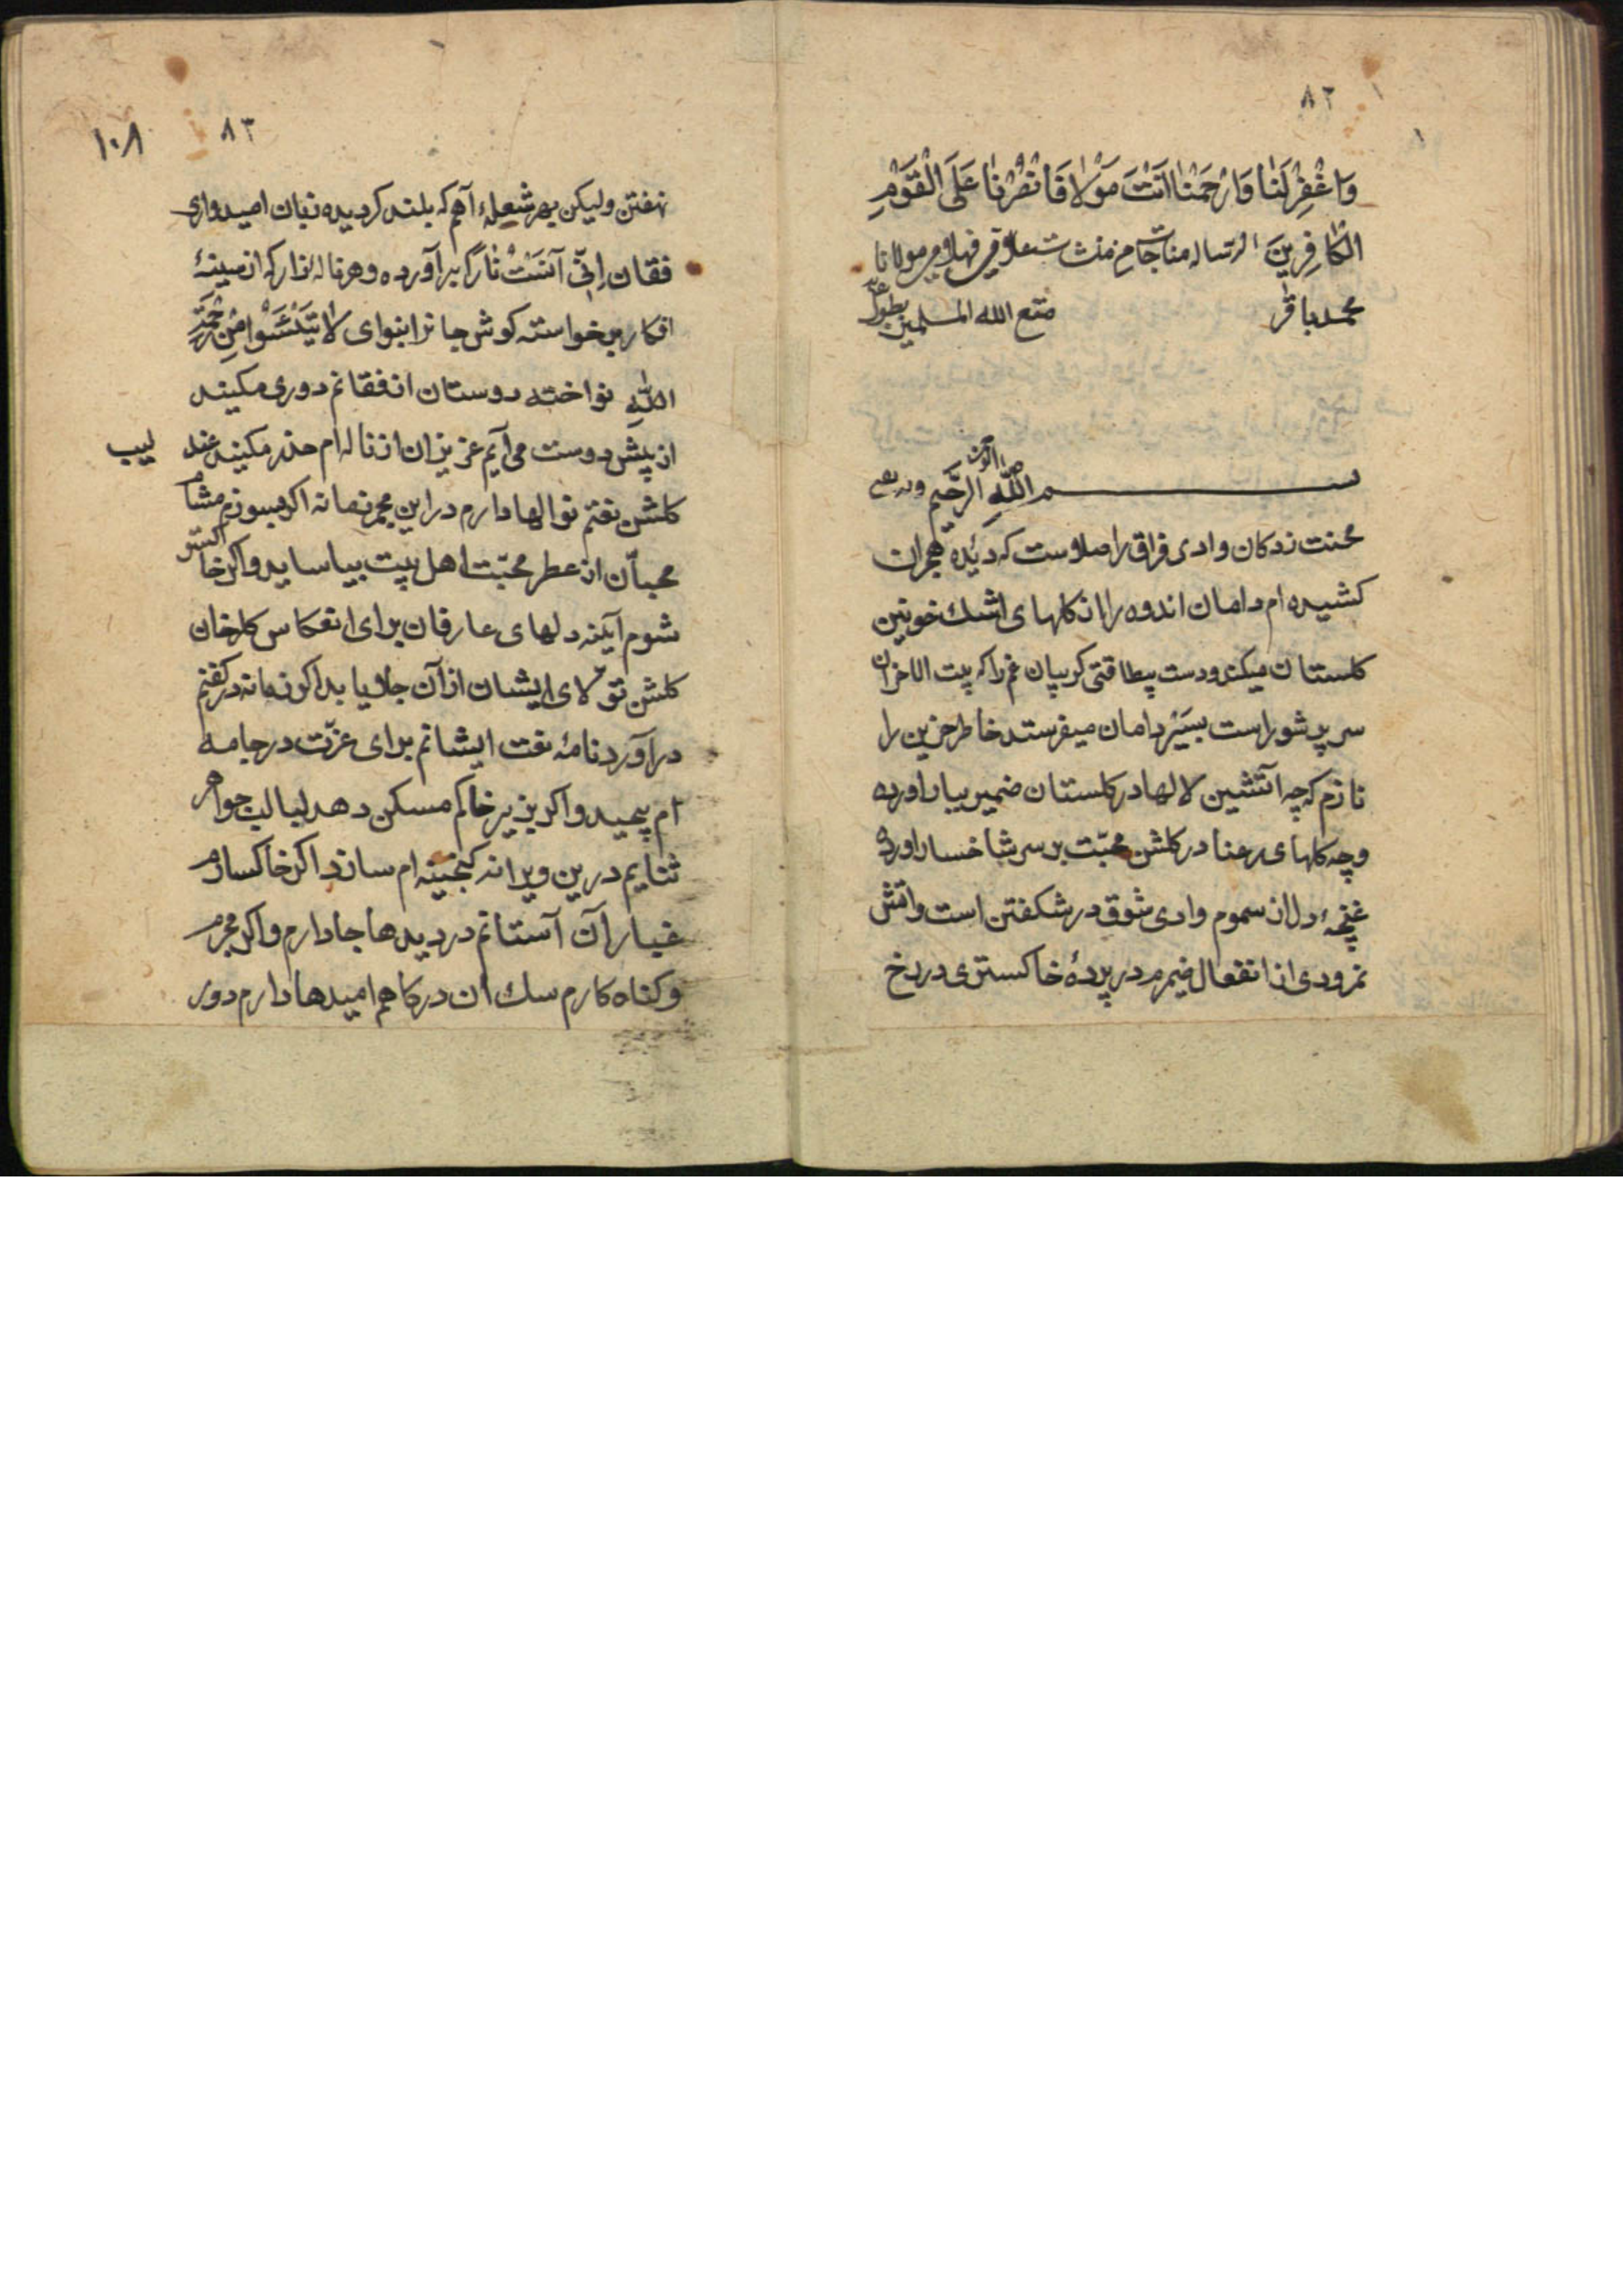 ٨٢
وَاغْفِرْ لَنَا وَارْحَمْنَا اَنْتَ مَوْلانَا فَانْصُرْنَا عَلَى الْقَوْمِ
الْكَافِرِينَ مولانا
محمد باقر متع الله المسلمين بطول
بسم الله الرحمن الرحيم وبه نستعين
محنت زدکان وادی فراق را صلاست که دیده هجران
کشیده ام دامان اندوه را از کلهای اشك خونین
کلستان میکند ودست بیطاقتی کریبان غم را که بیت الاحزان
سر پر شور است بسیر دامان میفرستد خاطر حزین را
نازم که چه آتشین لالها در کلستان ضمیر ببار آورده
وچه کلهای رعنا در کلشن محبّت بر سر شاخسار آورده
غنچهٔ دل از سموم وادی شوق در شکفتن است وآتش
نمرودی از انفعال ضمیرم در پردهٔ خاکستری در رخ
٨٣ ١٠٨
نهفتن ولیکن بهر شعلهٔ آهم که بلند کردیده زبان امیدواری
فغان اِنّی آنَسْتُ نَارًا برآورده وهر نالهٔ زار که از سینهٔ
افکار برخواسته کوش جانرا بنوای لا تَيْأَسُوا مِنْ
اللّٰهِ نواخته دوستان از فغانم دوری مکنید
از پیش دوست می آیم عزیزان از ناله ام حذر مکنید عندلیب
کلشن نغتم نوالها دارم در این مجمر زمانه اکر بسوزم مشام
محبّان از عطر محبّت اهل بیت بیاساید واکر خاکستر
شوم آینه دلهای عارفان برای انعکاس کلرخان
کلشن تولای ایشان از آن جلا یابد اکر زمانه در کفنم
درآورد نامهٔ نعت ایشانم برای عزّت در جامه
ام پیچید واکر بزیر خاکم مسکن دهد لبالب جواهر
ثنایم درین ویرانه کنجینه ام سازد اکر خاکسارم
غبار آن آستانم در دیدها جا دارم واکر مجرم
وکناه کارم سك آن درکاهم امیدها دارم دور